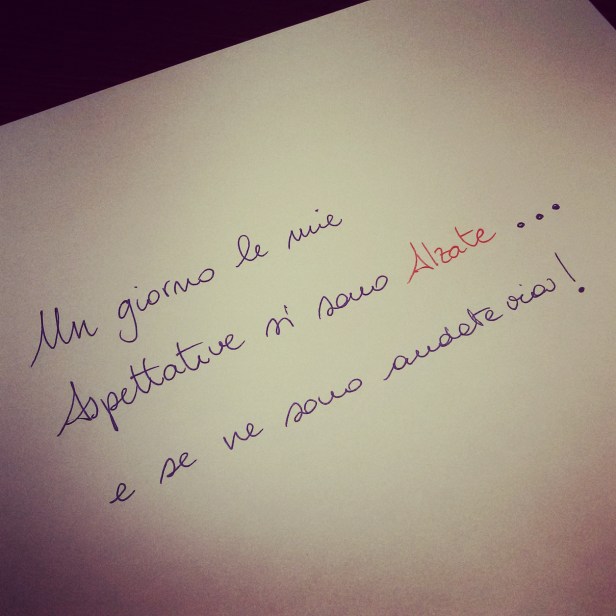 Un giorno le mie
Aspettative si sono Alzate ...
e se ne sono andate via!